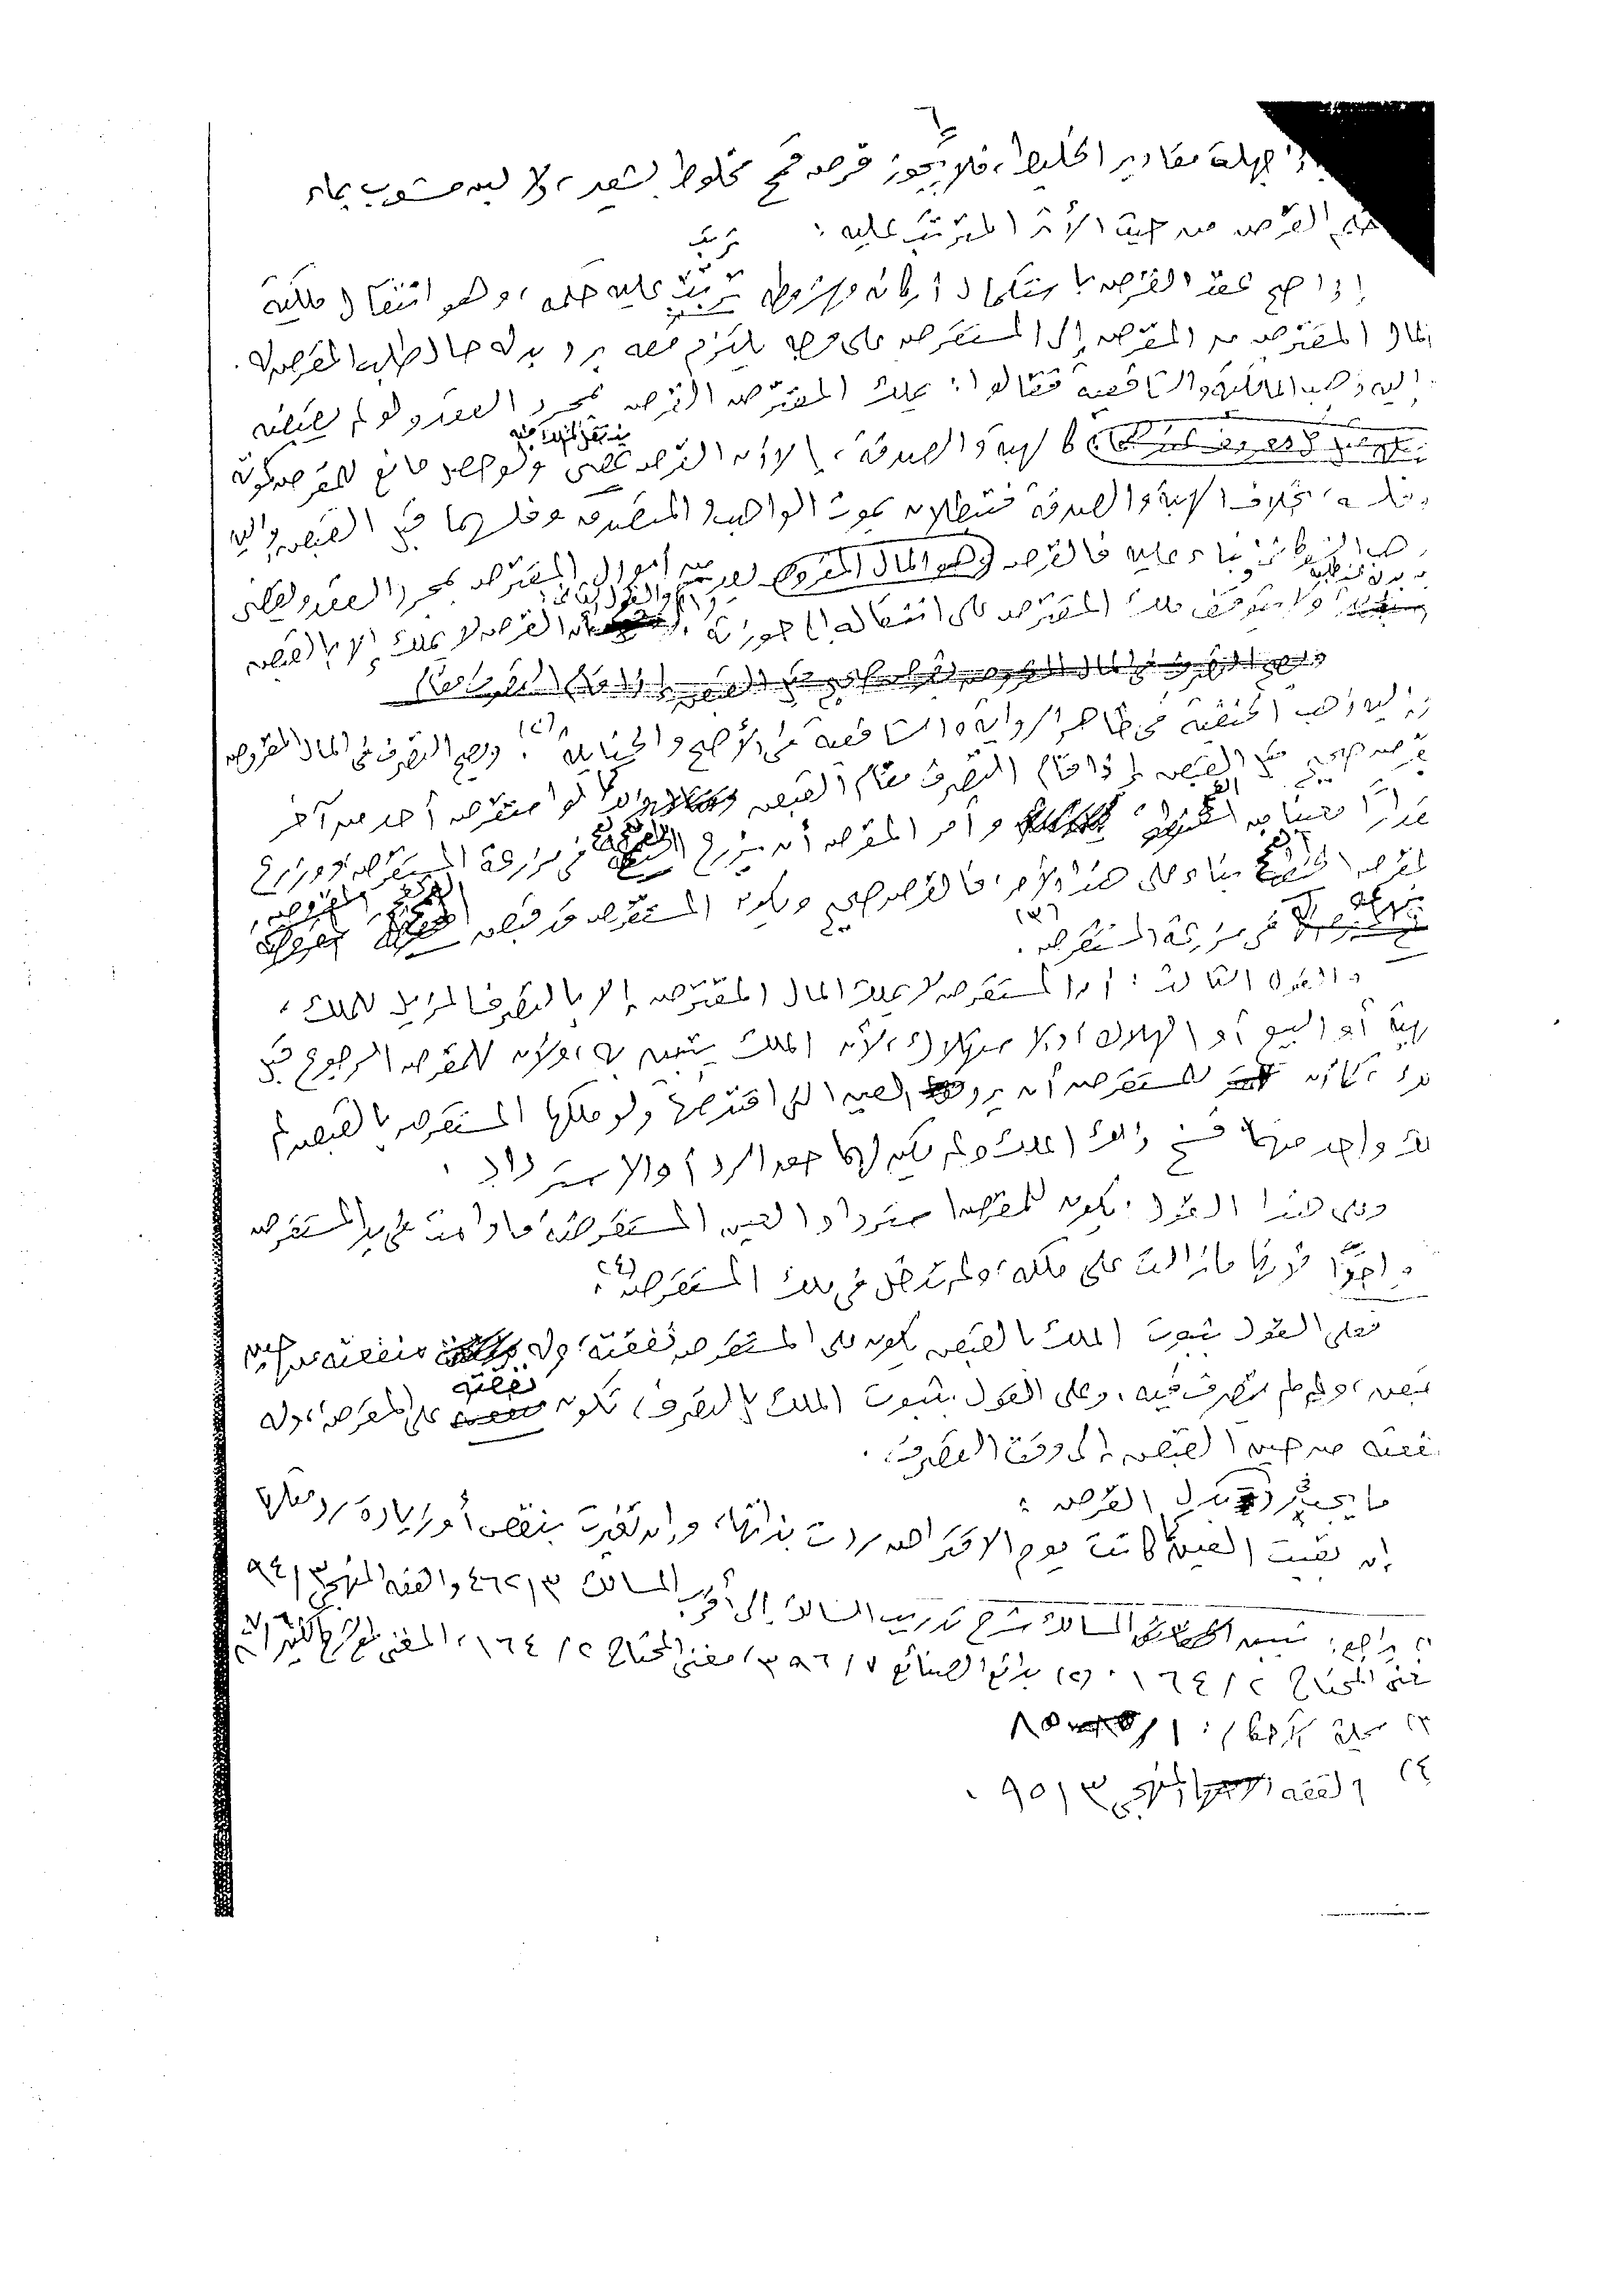 ٦
جهلة مقادير الخليط، فلا يجوز قرض قمح مخلوط بشعير، ولا لبن مشوب بماء
القرض من حيث الأثر المترتب عليه:
إذا صح عقد القرض باستكمال أركانه وشروطه ترتب عليه حكمه، وهو انتقال ملكية
المال المقترض من المقرض إلى المستقرض على وجه يلتزم معه برد بدله حال طلب المقرض له.
إليه ذهب المالكية والشافعية فقالوا: يملك المقترض القرض بمجرد العقد ولو لم يقبضه
كالهبة والصدقة، إلا أن القرض ولو حصل مانع للمقرض كموته
بخلاف الهبة والصدقة فتبطلان بموت الواهب والمتصدق وفلسهما قبل القبض وإليه
ذهب الشوكاني بناء عليه فالقرض (وهو المال المقروض) من أموال المقترض بمجرد العقد ويقضى
ولا يتوقف ملك المقترض على انتقاله إلى حوزته (١) والقول الثاني: أن القرض لا يملك إلا بالقبض
وإليه ذهب الحنفية في ظاهر الرواية والشافعية في الأصح والحنابلة (٢). ويصح التصرف في المال المقروض
قرض صحيح قبل القبض إذا قام التصرف مقام القبض كما لو استقرض أحد من آخر
مقدارًا معينا من وأمر المقرض أن يزرع القمح في مزرعة المستقرض وزرع
المقرض القمح بناء على هذا الأمر، فالقرض صحيح ويكون المستقرض قد قبض القمح المقروض
في مزرعة المستقرض. (٣)
والقول الثالث: أن المستقرض لا يملك المال المقترض إلا بالتصرف المزيل للملك،
كالهبة أو البيع أو الهلاك أو بالاستهلاك، لأن الملك يتبين به، ولأن للمقرض الرجوع قبل
ذلك، كما أن للمستقرض أن يرد العين التي اقترضها ولو ملكها المستقرض بالقبض لم
يملك واحد منهما فسخ ذلك الملك ولم يكن لهما حق الرد أو الاسترداد.
وعلى هذا القول: يكون للمقرض استرداد العين المستقرضة ما دامت في يد المستقرض
لأنها ما زالت على ملكه، ولم تدخل في ملك المستقرض (٤).
فعلى القول بثبوت الملك بالقبض يكون على المستقرض نفقته، وله منفعته من حين
قبضه، ولو لم يتصرف فيه، وعلى القول بثبوت الملك بالتصرف، تكون نفقته على المقرض، وله
منفعته من حين القبض إلى وقت التصرف.
ما يجب في رد بدل القرض:
إن بقيت العين كما كانت يوم الاقتراض ردت بذاتها، وإن تغيرت بنقص أو زيادة رد مثلها
(١) يراجع: تبيين المسالك شرح تدريب السالك إلى أقرب المسالك ٣/٤٦٢ والفقه المنهجي ٣/٩٤
مغني المحتاج ٢/١٦٤. (٢) بدائع الصنائع ٧/٣٩٦، مغني المحتاج ٢/١٦٤، المغني مع الشرح الكبير
(٣) مجلة الأحكام: ١/٨٥
(٤) الفقه المنهجي ٣/٩٥.